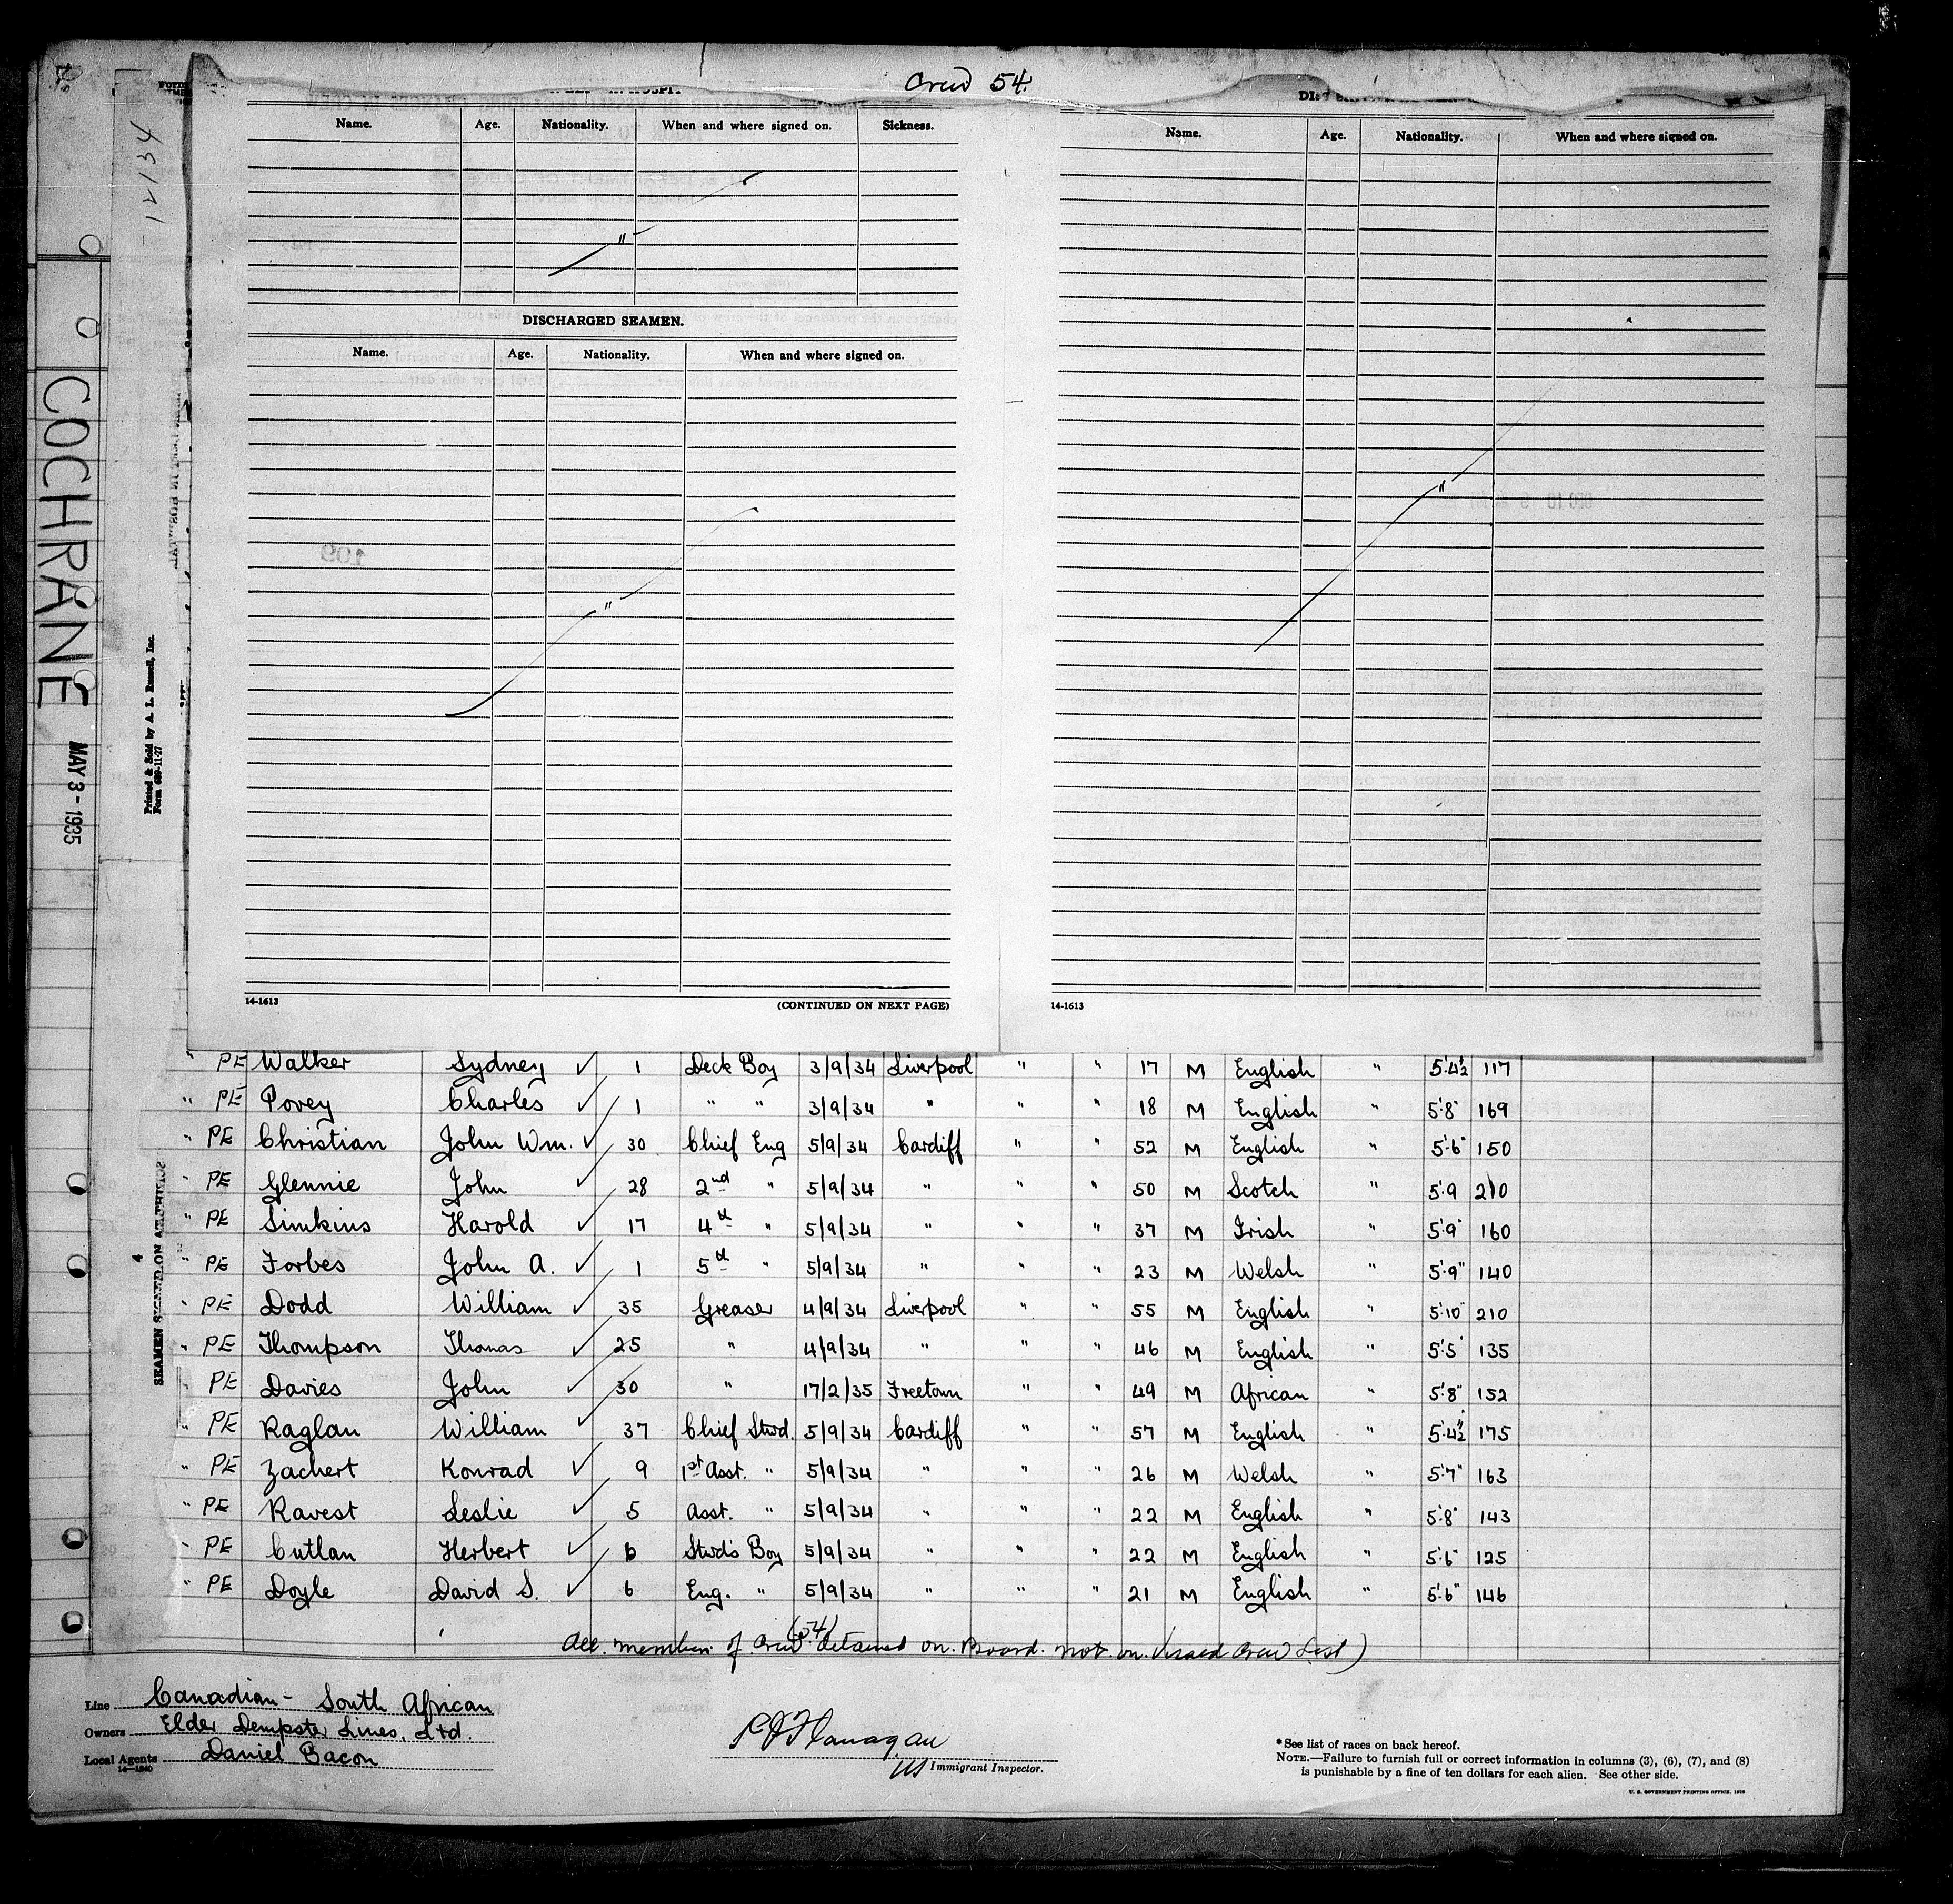 Crew 54.
12134
COCHRANE
MAY 3 - 1935
Printed & Sold by A. L. Russell, Inc.
Form 689-11-27
Name. Age. Nationality. When and where signed on. Sickness.
"
DISCHARGED SEAMEN.
Name. Age. Nationality. When and where signed on.
"
14-1613 (CONTINUED ON NEXT PAGE)
Name. Age. Nationality. When and where signed on.
"
14-1613
4
" PE Walker Sydney ✓ 1 Deck Boy 3/9/34 Liverpool " " 17 M English " 5'4½ 117
" PE Povey Charles ✓ 1 " " 3/9/34 " " " 18 M English " 5'8" 169
" PE Christian John Wm. ✓ 30 Chief Eng 5/9/34 Cardiff " " 52 M English " 5'6" 150
" PE Glennie John ✓ 28 2nd " 5/9/34 " " " 50 M Scotch " 5'9 210
" PE Simkins Harold ✓ 17 4th " 5/9/34 " " " 37 M Irish " 5'9" 160
" PE Forbes John A. ✓ 1 5th " 5/9/34 " " " 23 M Welsh " 5'9" 140
" PE Dodd William ✓ 35 Greaser 4/9/34 Liverpool " " 55 M English " 5'10" 210
" PE Thompson Thomas ✓ 25 " 4/9/34 " " " 46 M English " 5'5" 135
" PE Davies John ✓ 30 " 17/2/35 Freetown " " 49 M African " 5'8" 152
" PE Raglan William ✓ 37 Chief Stwd. 5/9/34 Cardiff " " 57 M English " 5'4½ 175
" PE Zachert Konrad ✓ 9 1st Asst. " 5/9/34 " " " 26 M Welsh " 5'7" 163
" PE Ravest Leslie ✓ 5 Asst. " 5/9/34 " " " 22 M English " 5'8" 143
" PE Cutlan Herbert ✓ 6 Stwd's Boy 5/9/34 " " " 22 M English " 5'6" 125
" PE Doyle David S. ✓ 6 Eng. " 5/9/34 " " " 21 M English " 5'6" 146
All members of Crew (54) detained on Board. not on Visaed Crew List)
Line Canadian - South African
Owners Elder Dempster Lines, Ltd.
Local Agents Daniel Bacon
14-1240
P J Flanagan
US Immigrant Inspector.
*See list of races on back hereof.
NOTE.—Failure to furnish full or correct information in columns (3), (6), (7), and (8)
is punishable by a fine of ten dollars for each alien. See other side.